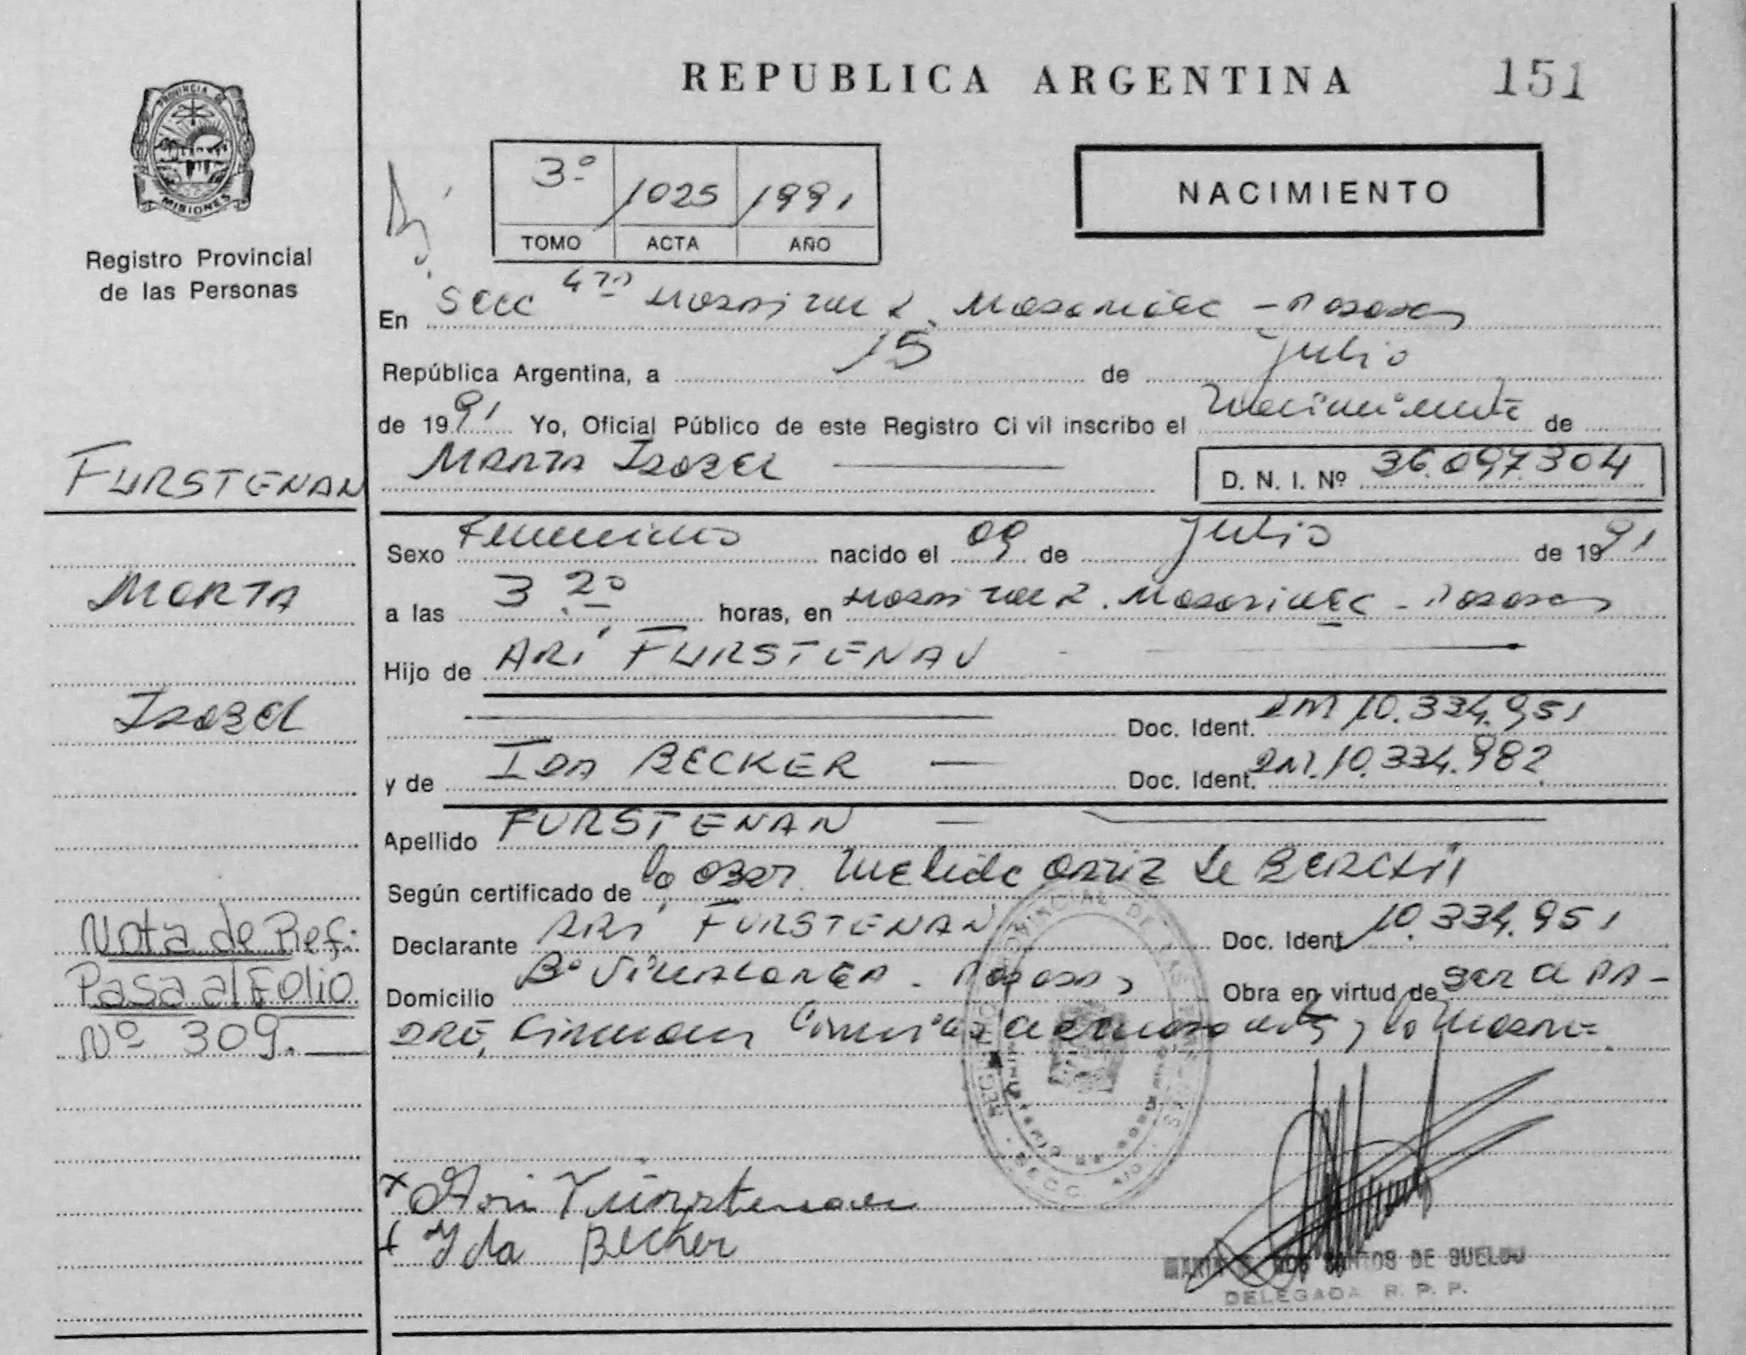 REPUBLICA ARGENTINA 151
PROVINCIA DE
MISIONES
Registro Provincial
de las Personas
3º 1025 1991
TOMO ACTA AÑO
NACIMIENTO
En Secc 4ta
República Argentina, a 15 de Julio
de 1991 Yo, Oficial Público de este Registro Civil inscribo el Nacimiento de
FURSTENAN
MARTA ISABEL D. N. I. Nº 36.097.304
Sexo Femenino nacido el 09 de Julio de 1991
MARTA
a las 3 20 horas, en
Hijo de ARÍ FURSTENAU
ISABEL
Doc. Ident. DNI 10.334.951
y de IDA BECKER Doc. Ident. DNI. 10.334.982
Apellido FURSTENAN
Según certificado de la Obst. de
Nota de Ref:
Declarante ARÍ FURSTENAN Doc. Ident 10.334.951
Pasa al Folio
Domicilio Bº Obra en virtud de ser el PA-
Nº 309.
DRE, y la madre.
x Ari Fürstenau
x Yda Becker
DOS SANTOS DE SUELDO
DELEGADA R. P. P.